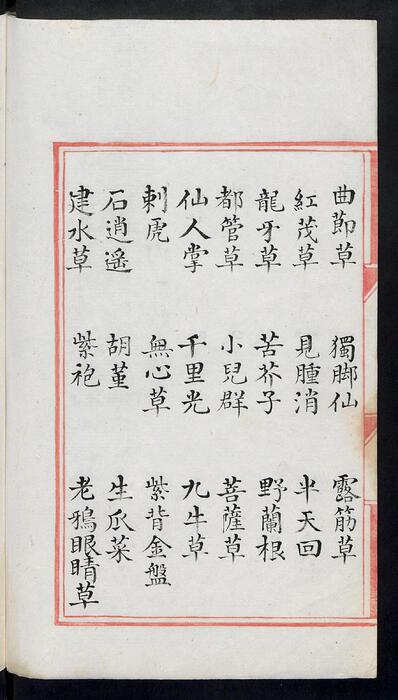 曲節草 獨脚仙 露筋草
紅茂草 見腫消 半天回
龍牙草 苦芥子 野蘭根
都管草 小兒群 菩薩草
仙人掌 千里光 九牛草
刺虎 無心草 紫背金盤
石逍遥 胡堇 生瓜菜
建水草 紫袍 老鴉眼睛草